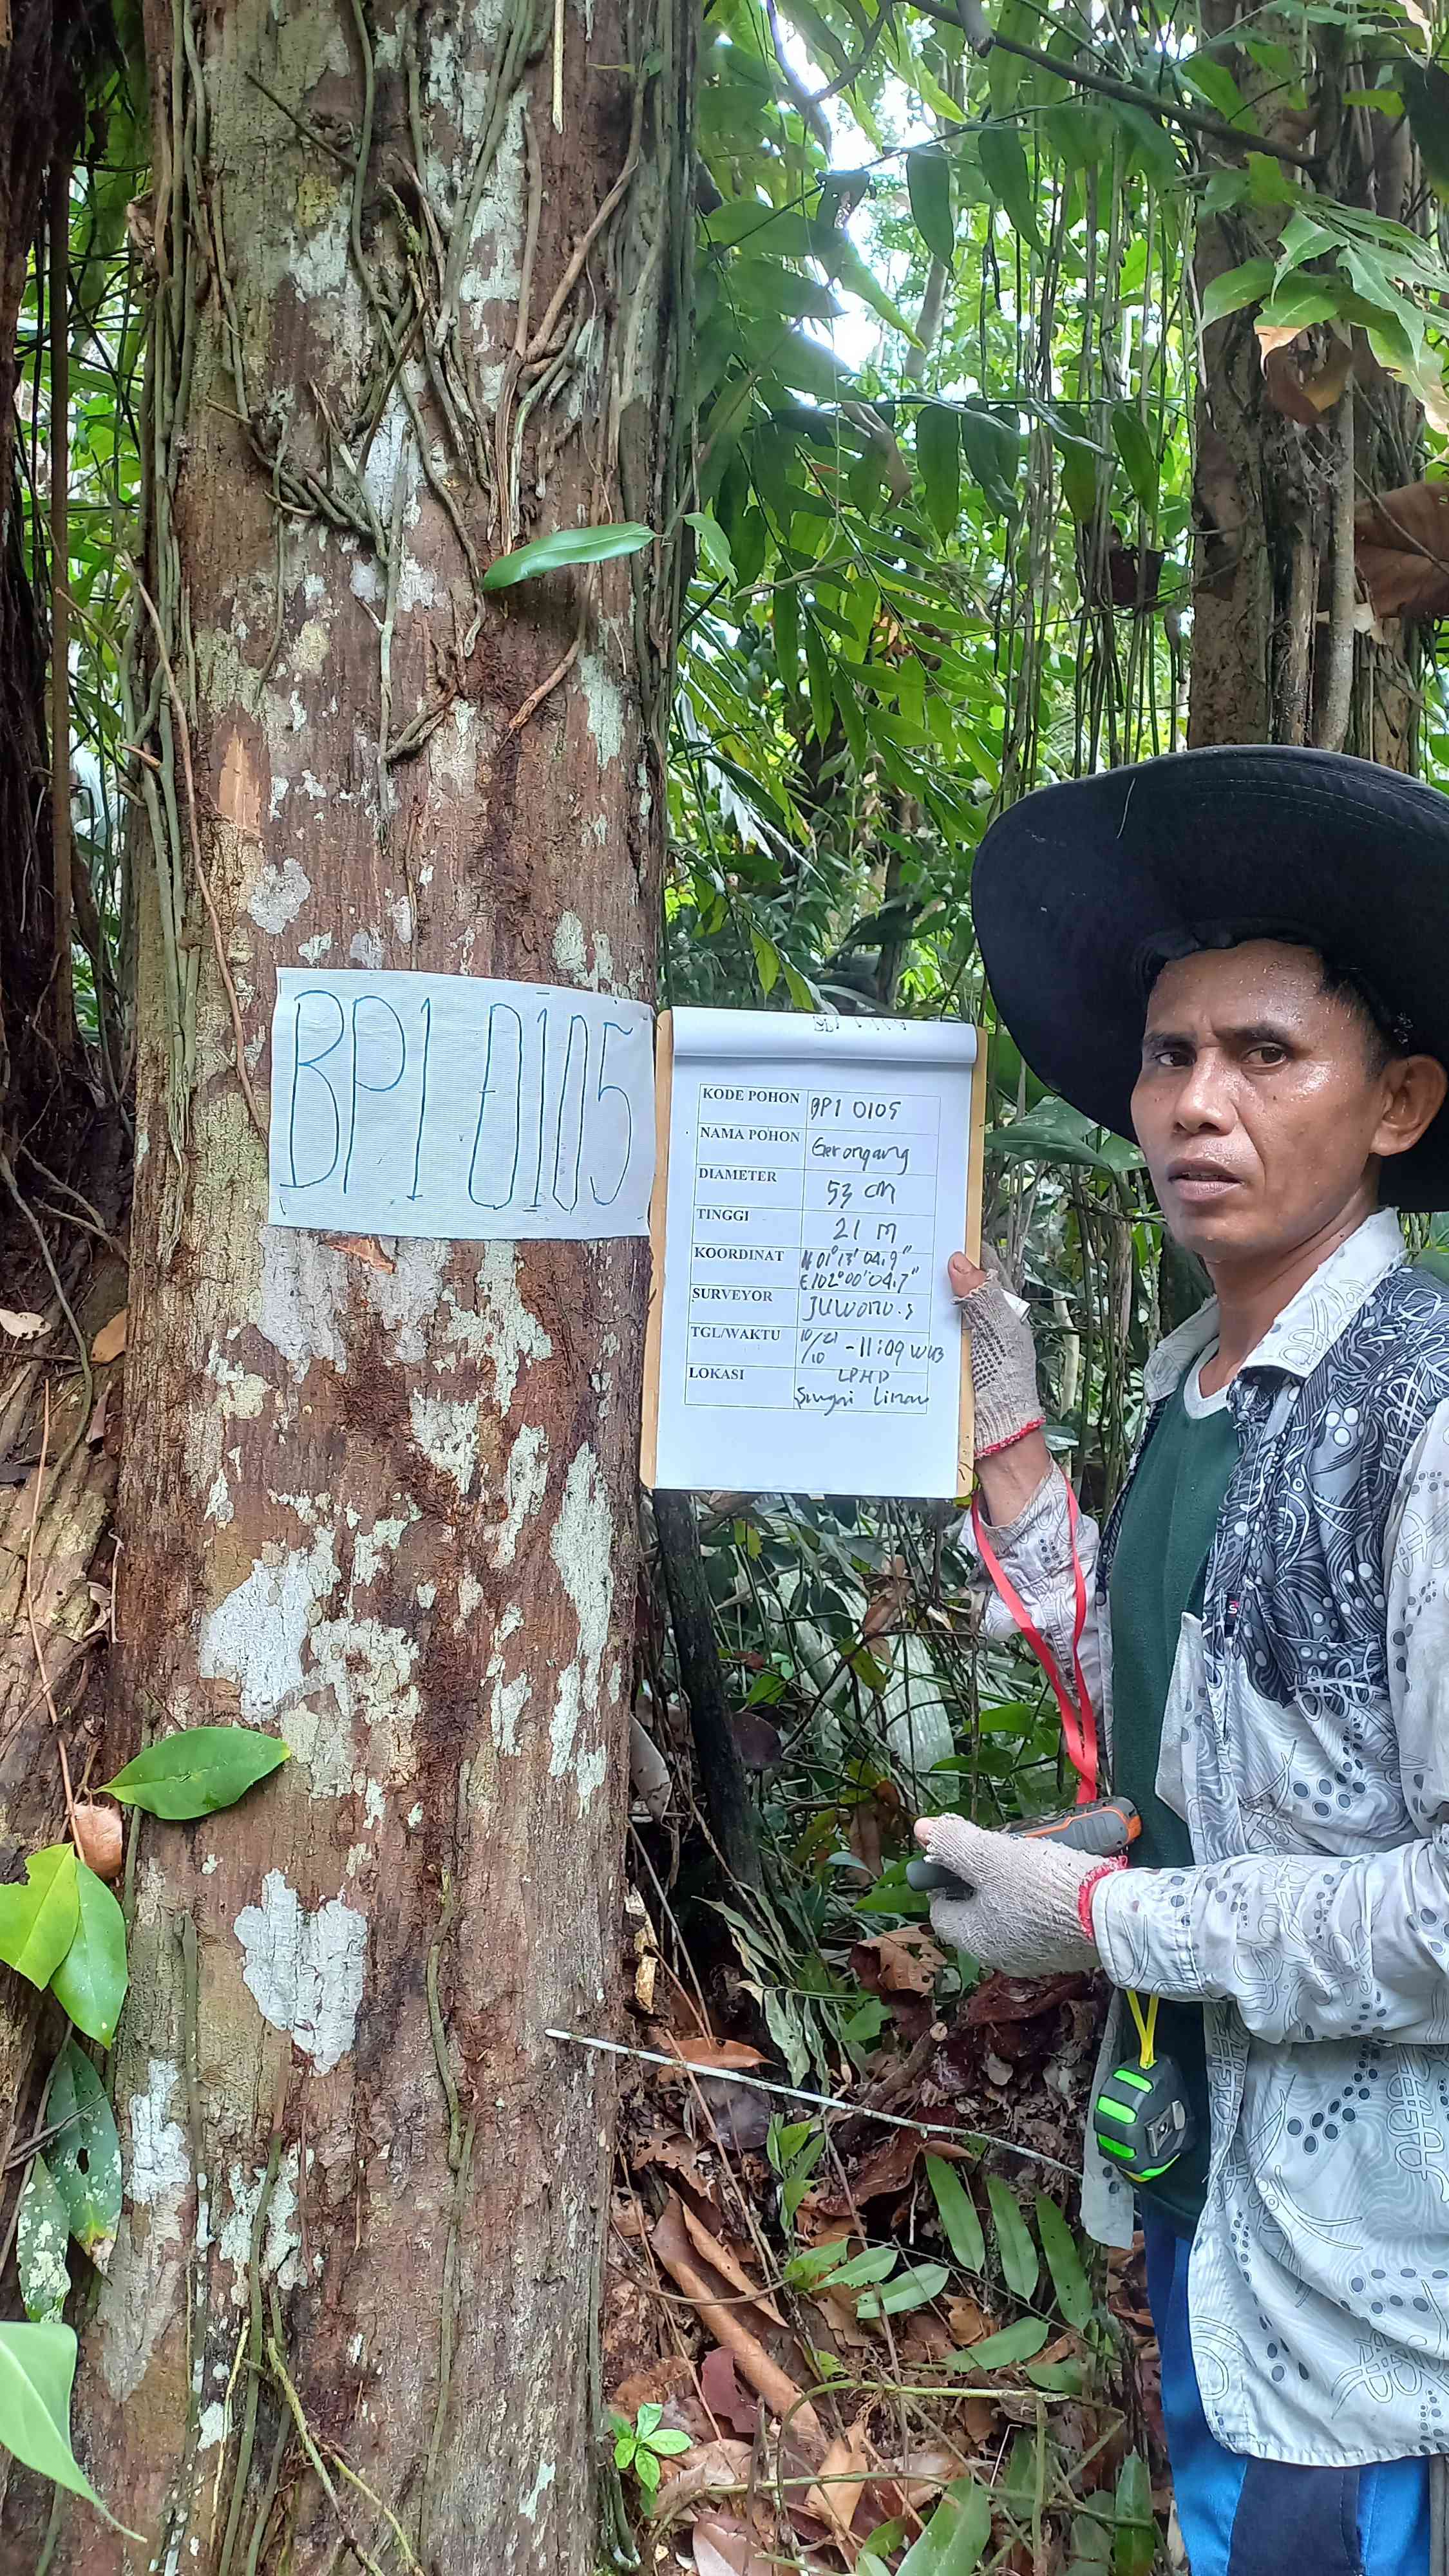 BP1 0105
KODE POHON BP1 0105
NAMA POHON Gerongang
DIAMETER 53 CM
TINGGI 21 M
KOORDINAT N 01°13'04.9"
E102°00'04.7"
SURVEYOR JUWONO.S
TGL/WAKTU 10/21/10 - 11:09 WIB
LOKASI LPHD
Sungai Linau